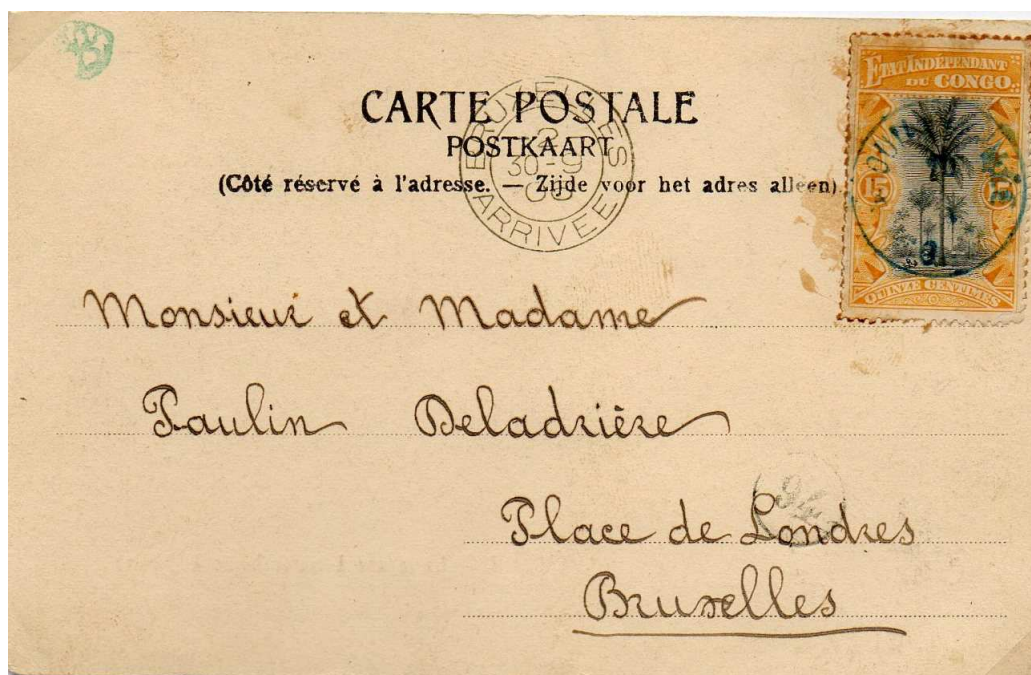 CARTE POSTALE
POSTKAART
(Côté réservé à l'adresse. — Zijde voor het adres alleen)
BRUXELLES
30-9
ARRIVEE
ÉTAT INDÉPENDANT
DU CONGO
15 15
QUINZE CENTIMES
Monsieur et Madame
Paulin Deladrière
Place de Londres
Bruxelles
94